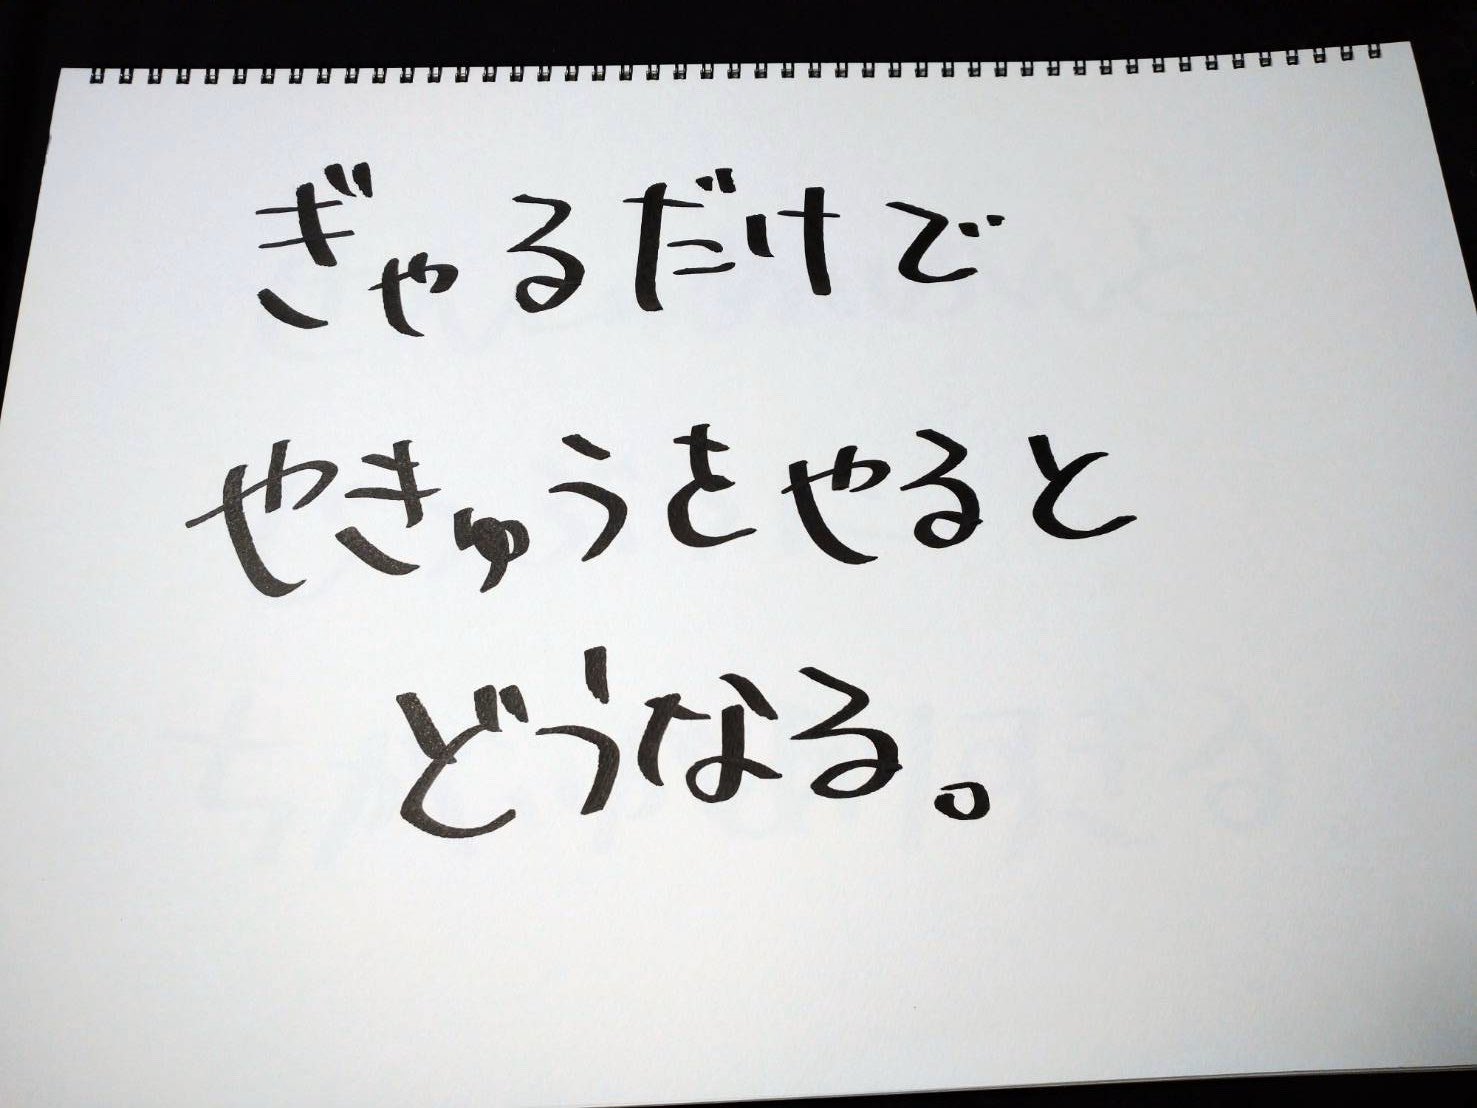 ぎゃるだけで
やきゅうをやると
どうなる。